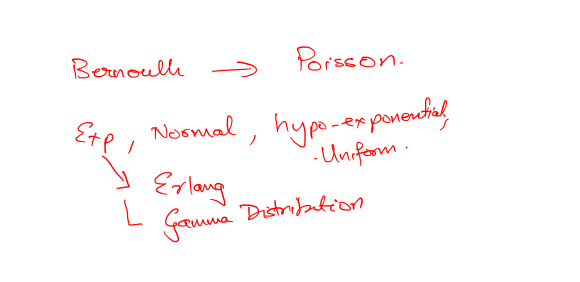 Bernoulli → Poisson.
Exp, Normal, hypo-exponential,
.Uniform.
Erlang
Gamma Distribution